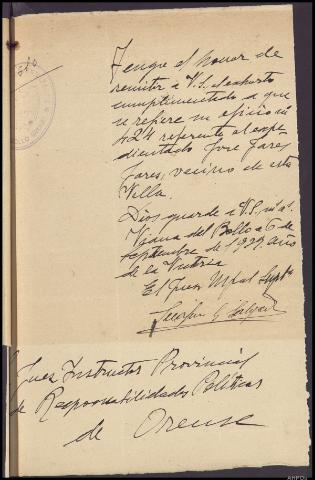 Tengo el honor de
remitir a V.S. el exhorto
cumplimentado a que
se refiere su oficio nº
424 referente al expe-
dientado José Fares
Fares, vecino de esta
Villa.
Dios guarde a V.S. m. a.
Viana del Bollo a 6 de
septiembre de 1939. año
de la Victoria
El Juez Mpal Suptº
Juez Instructor Provincial
de Responsabilidades Políticas
de Orense
AHPOU